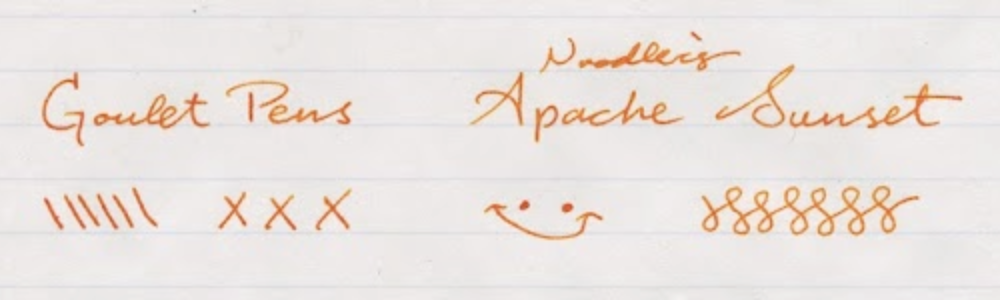 Noodler's
Goulet Pens Apache Sunset
X X X